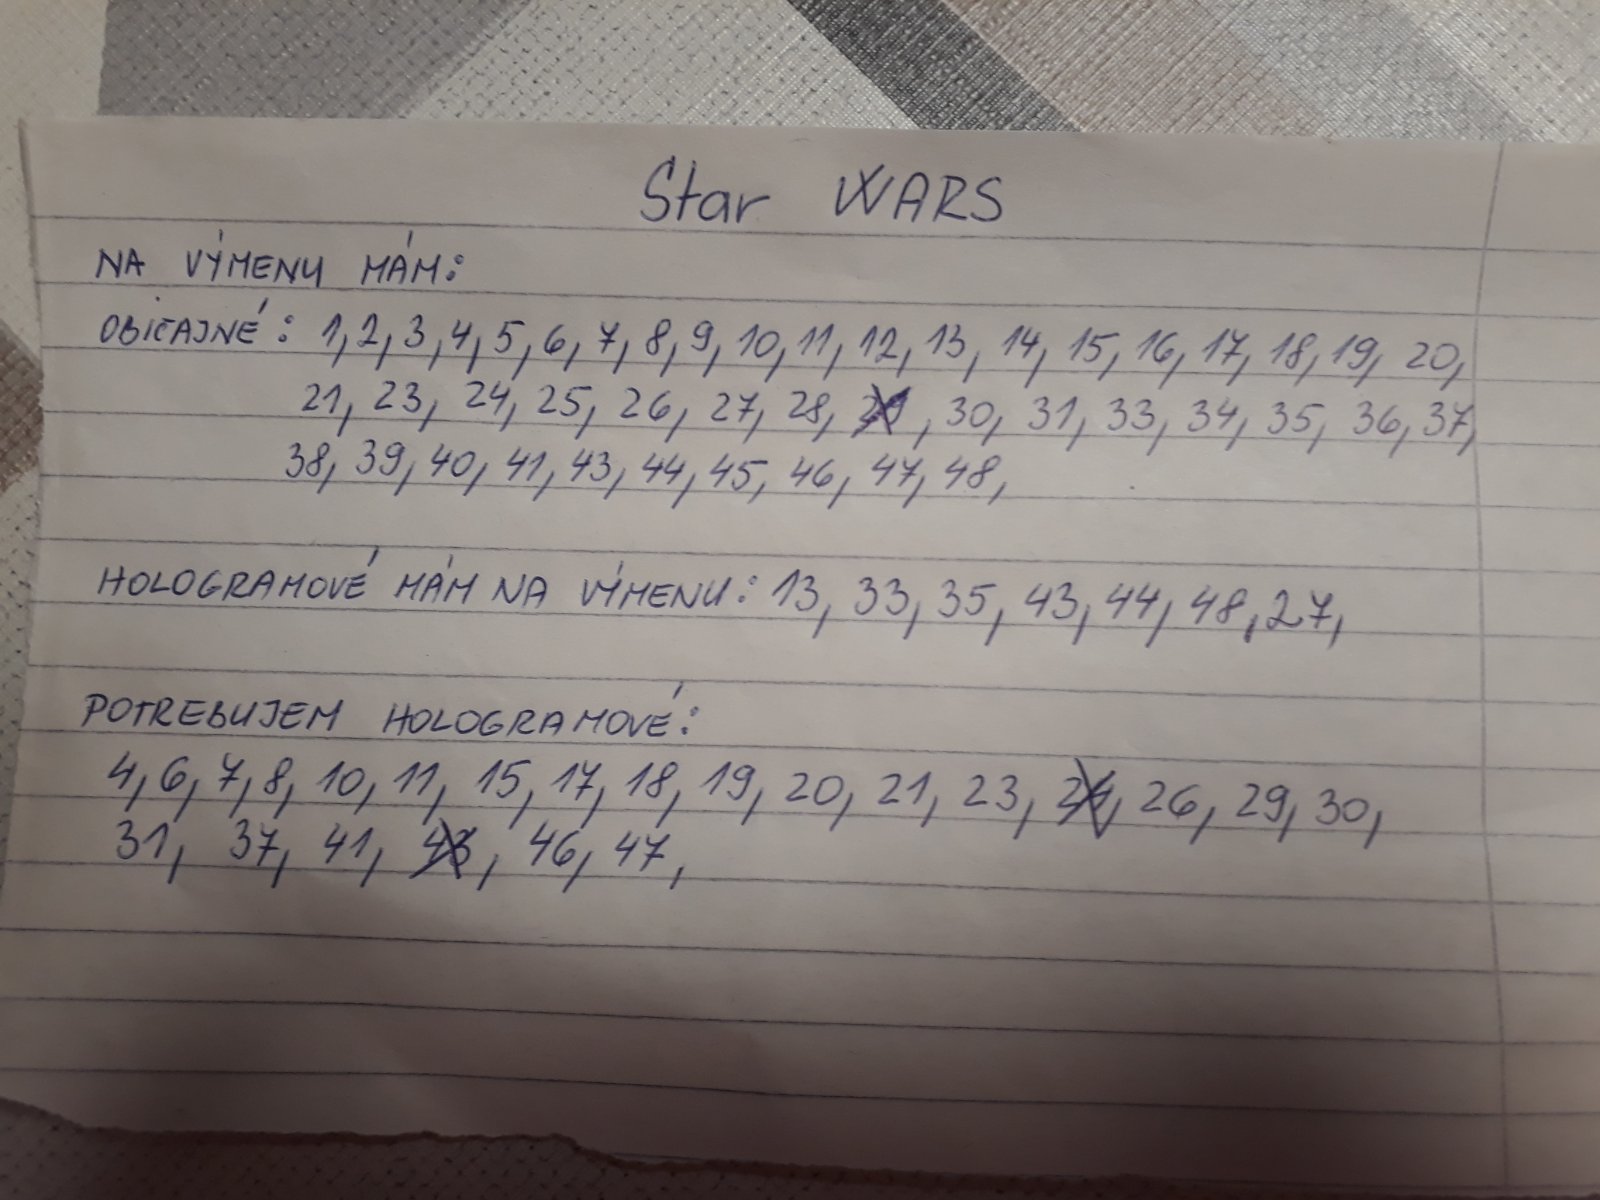 Star WARS
NA VÝMENU MÁM:
OBIČAJNÉ: 1, 2, 3, 4, 5, 6, 7, 8, 9, 10, 11, 12, 13, 14, 15, 16, 17, 18, 19, 20,
21, 23, 24, 25, 26, 27, 28, 29, 30, 31, 33, 34, 35, 36, 37,
38, 39, 40, 41, 43, 44, 45, 46, 47, 48,
HOLOGRAMOVÉ MÁM NA VÝMENU: 13, 33, 35, 43, 44, 48, 27,
POTREBUJEM HOLOGRAMOVÉ:
4, 6, 7, 8, 10, 11, 15, 17, 18, 19, 20, 21, 23, 26, 29, 30,
31, 37, 41, 43, 46, 47,